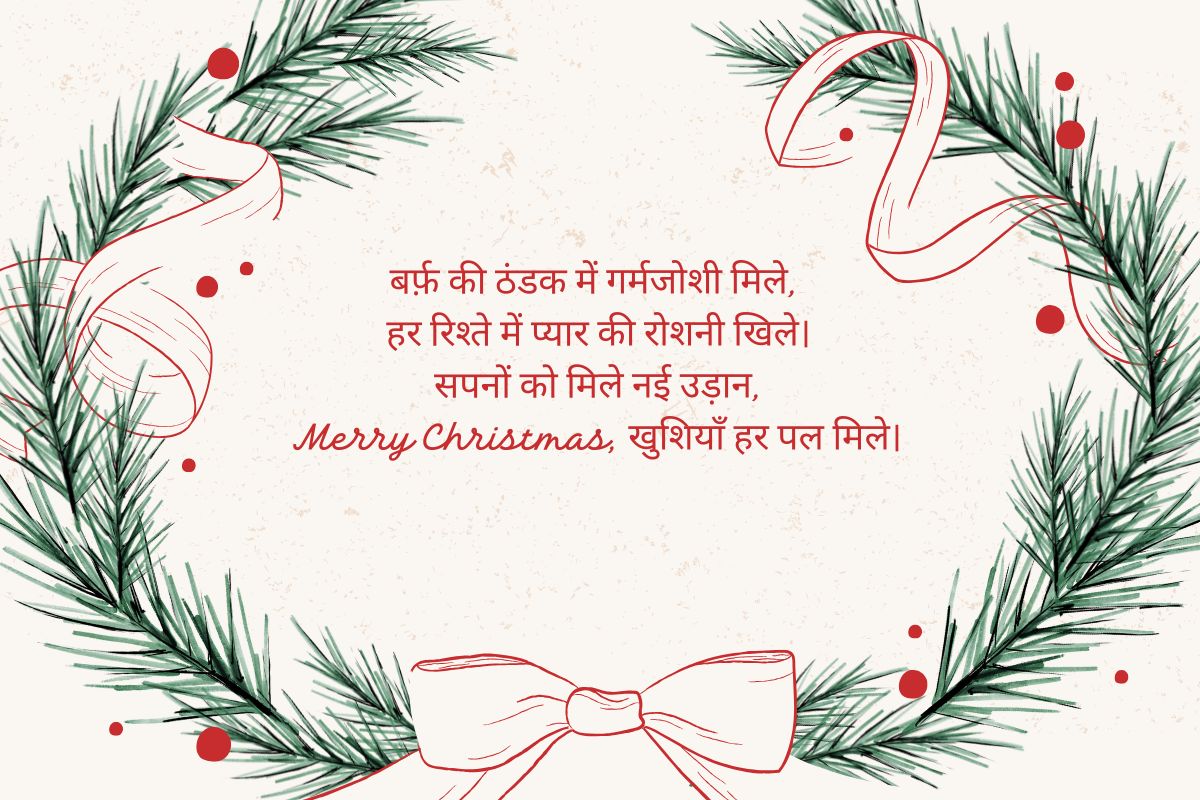 बर्फ़ की ठंडक में गर्मजोशी मिले,
हर रिश्ते में प्यार की रोशनी खिले।
सपनों को मिले नई उड़ान,
Merry Christmas, खुशियाँ हर पल मिले।